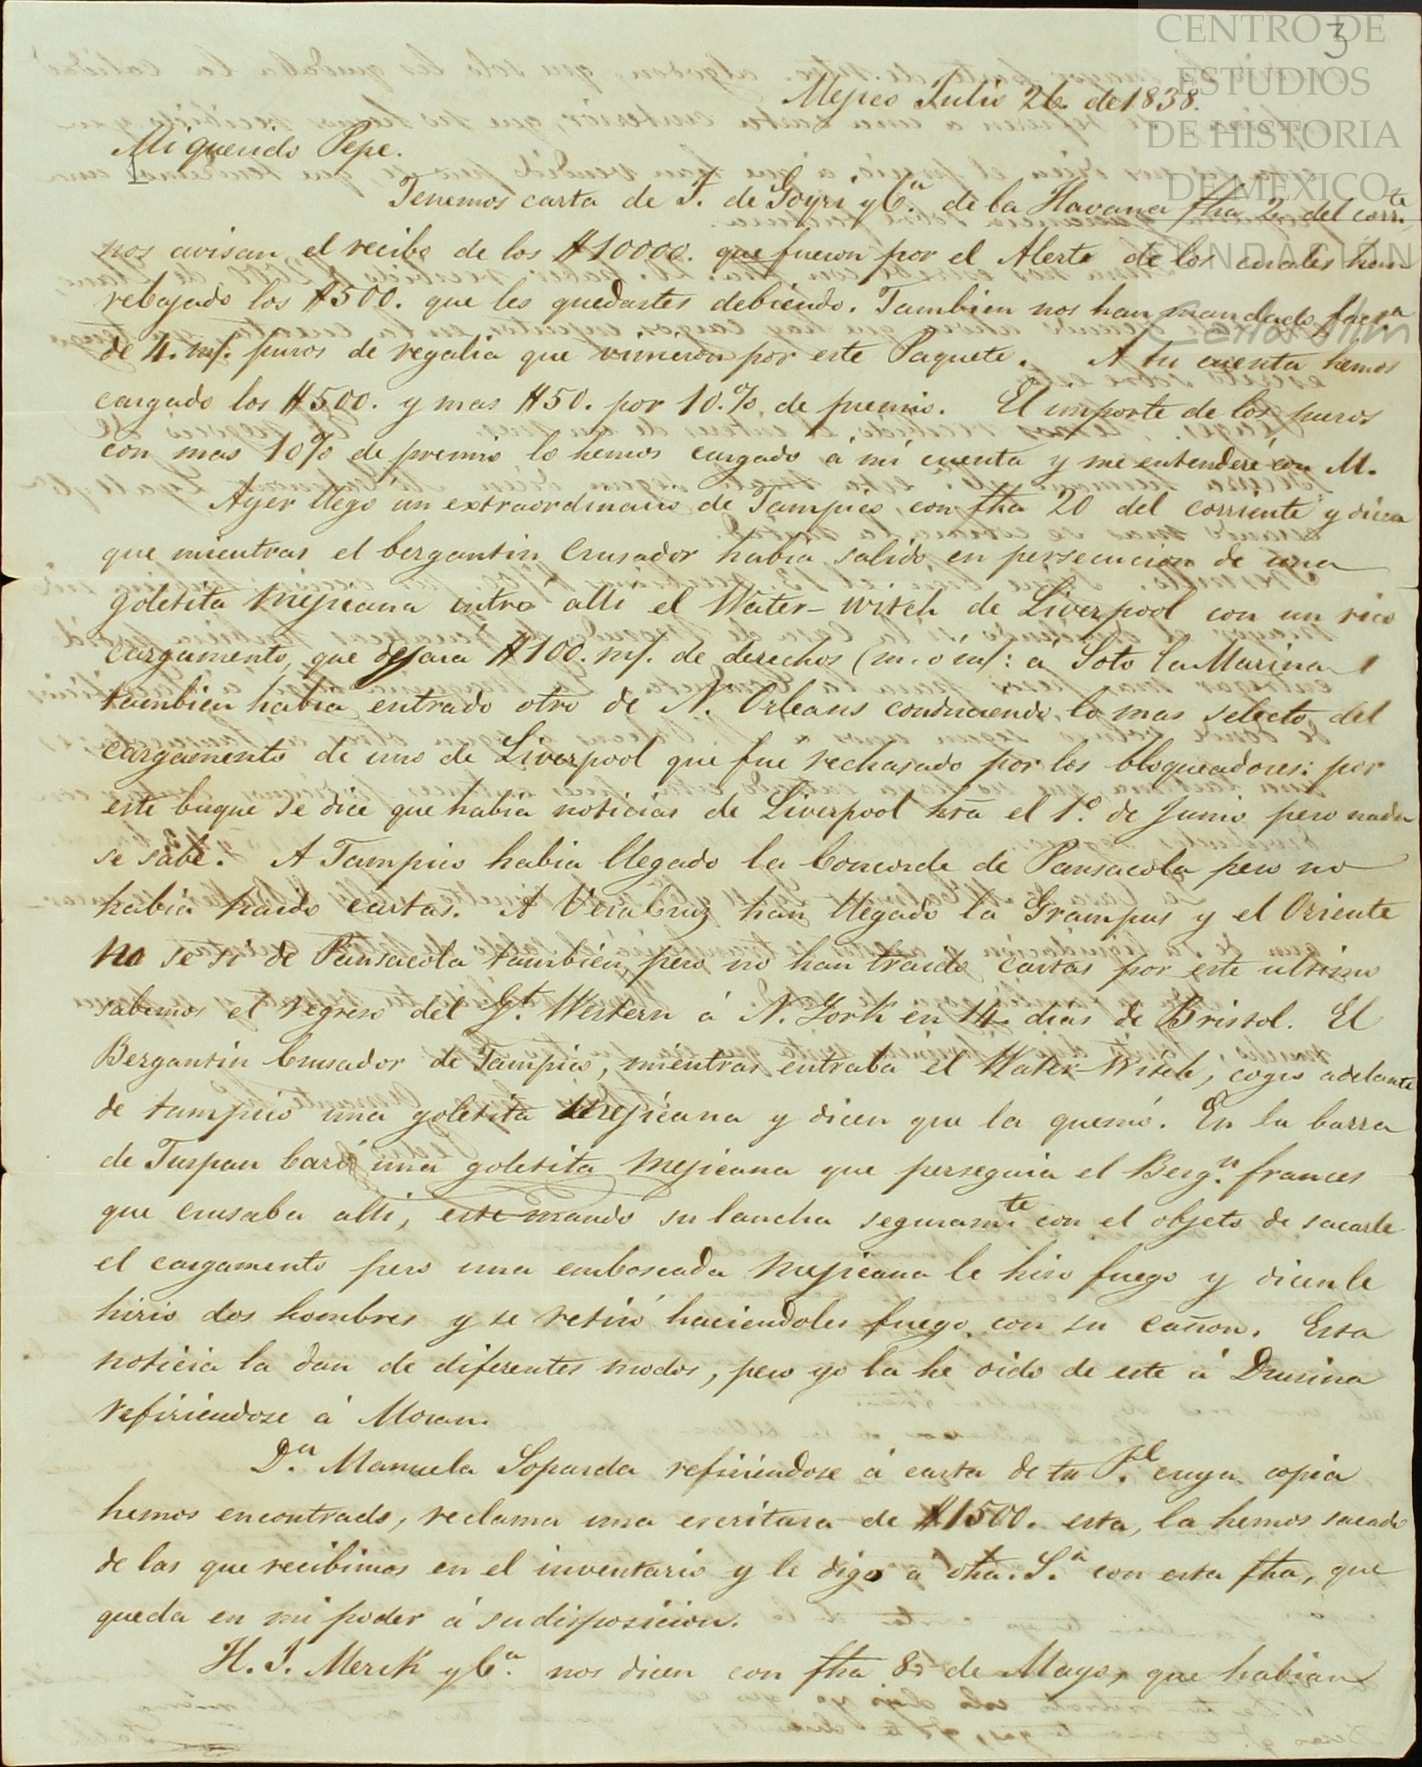 CENTRO DE
ESTUDIOS
DE HISTORIA
DE MEXICO
FUNDACIÓN
Carlos Slim
3
Mejico Julio 26 de 1838.
Mi querido Pepe.
Tenemos carta de F. de Goyri y C.ª de la Havana fha 2 del corr.te
nos avisan el recibo de los $10000. que fueron por el Alerta de los cuales han
rebajado los $500. que les quedastes debiendo. Tambien nos han mandado fact.ª
de 4. m/. puros de regalia que vinieron por este Paquete. A tu cuenta hemos
cargado los $500. y mas $50. por 10.% de premio. El importe de los puros
con mas 10% de premio lo hemos cargado á mi cuenta y me entenderé con M.
Ayer llego un extraordinario de Tampico, con fha 20 del corriente y dicen
que mientras el bergantin Crusador habia salido en persecucion de una
goletita Mejicana entró alli el Water-witch de Liverpool con un rico
cargamento, que dejará $100. m/. de derechos (m. o m/: á Soto la Marina
tambien habia entrado otro de N. Orleans conduciendo lo mas selecto del
cargamento de uno de Liverpool que fue rechasado por los bloqueadores: por
este buque se dice que habia noticias de Liverpool hta el 1.º de Junio pero nada
se sabe. A Tampico habia llegado la Concorde de Pansacola pero no
habia traido cartas. A VeraCruz han llegado la Grampus y el Oriente
no se si de Pansacola tambien, pero no han traido cartas por este ultimo
sabemos el regreso del G.t Western á N. York en 14. dias de Bristol. El
Bergantin Crusador de Tampico, mientras entraba el Water-Witch, cogio adelante
de tampico una goletita Mejicana y dicen que la quemó. En la barra
de Tuspan baró una goletita Mejicana que perseguia el Berg.n frances
que crusaba alli, este mando su lancha seguram.te con el objeto de sacarle
el cargamento pero una emboscada Mejicana le hiso fuego y dicen le
hirio dos hombres y se retiró haciendoles fuego con su cañon. Esta
noticia la dan de diferentes modos, pero yo la he oido de este á Drusina
refiriendose á Moran.
D.ª Manuela Soparda refiriendose á carta de tu P.el cuya copia
hemos encontrado, reclama una escritura de $1500. esta, la hemos sacado
de las que recibimos en el inventario y le digo á dha. S.ª con esta fha, que
queda en mi poder á su disposicion.
H. J. Merck y C.ª nos dicen con fha 8 de Mayo, que habian